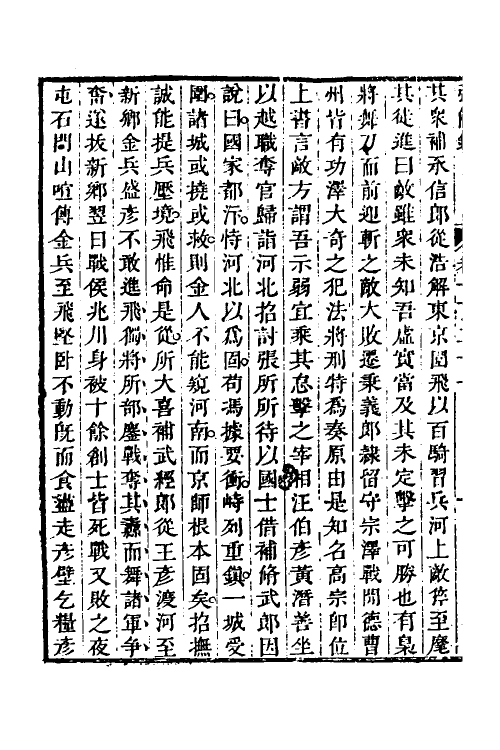 其衆補承信郎從浩解東京圍飛以百騎習兵河上敵猝至麾
其徒進曰敵雖衆未知吾虛實當及其未定擊之可勝也有梟
將舞刀而前迎斬之敵大敗遷秉義郎隸留守宗澤戰開德曹
州皆有功澤大奇之犯法將刑特爲奏原由是知名高宗即位
上書言敵方謂吾示弱宜乘其怠擊之宰相汪伯彥黃潛善坐
以越職奪官歸詣河北招討張所所待以國士借補脩武郎因
說曰國家都汴恃河北以爲固苟馮據要衝峙列重鎮一城受
圍諸城或撓或救則金人不能窺河南而京師根本固矣招撫
誠能提兵壓境飛惟命是從所大喜補武經郎從王彥渡河至
新鄉金兵盛彥不敢進飛獨將所部鏖戰奪其纛而舞諸軍爭
奮遂拔新鄉翌日戰侯兆川身被十餘創士皆死戰又敗之夜
屯石門山喧傳金兵至飛堅卧不動旣而食盡走彥壁乞糧彥